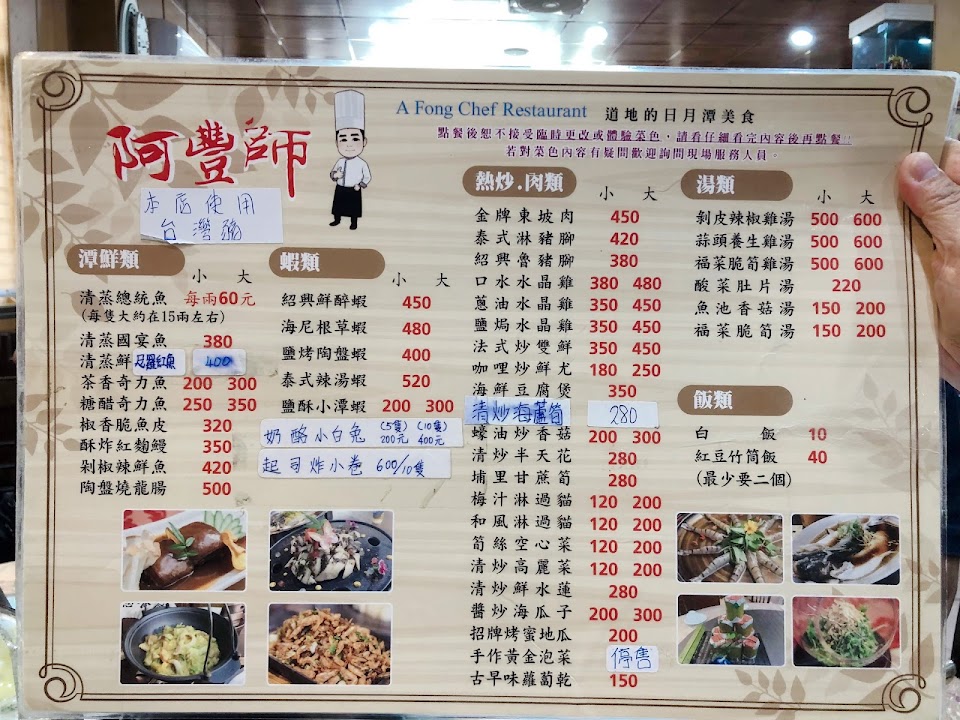 阿豐師
A Fong Chef Restaurant 道地的日月潭美食
點餐後恕不接受臨時更改或體驗菜色，請看仔細看完內容後再點餐!!
若對菜色內容有疑問歡迎詢問現場服務人員。
本店使用
台灣豬
潭鮮類 小 大
清蒸總統魚 每兩60元
(每隻大約在15兩左右)
清蒸國宴魚 380
清蒸鮮尼羅紅魚 400
茶香奇力魚 200 300
糖醋奇力魚 250 350
椒香脆魚皮 320
酥炸紅麴鰻 350
剁椒辣鮮魚 420
陶盤燒龍腸 500
蝦類 小 大
紹興鮮醉蝦 450
海尼根草蝦 480
鹽烤陶盤蝦 400
泰式辣湯蝦 520
鹽酥小潭蝦 200 300
奶酪小白兔 (5隻)200元 (10隻)400元
起司炸小卷 600/10隻
熱炒.肉類 小 大
金牌東坡肉 450
泰式淋豬腳 420
紹興魯豬腳 380
口水水晶雞 380 480
蔥油水晶雞 350 450
鹽焗水晶雞 350 450
法式炒雙鮮 350 450
咖哩炒鮮尤 180 250
海鮮豆腐煲 350
清炒海蘆筍 280
蠔油炒香菇 200 300
清炒半天花 280
埔里甘蔗筍 280
梅汁淋過貓 120 200
和風淋過貓 120 200
筍絲空心菜 120 200
清炒高麗菜 120 200
清炒鮮水蓮 280
醬炒海瓜子 200 300
招牌烤蜜地瓜 200
手作黃金泡菜 停售
古早味蘿蔔乾 150
湯類 小 大
剝皮辣椒雞湯 500 600
蒜頭養生雞湯 500 600
福菜脆筍雞湯 500 600
酸菜肚片湯 220
魚池香菇湯 150 200
福菜脆筍湯 150 200
飯類
白飯 10
紅豆竹筒飯 40
(最少要二個)